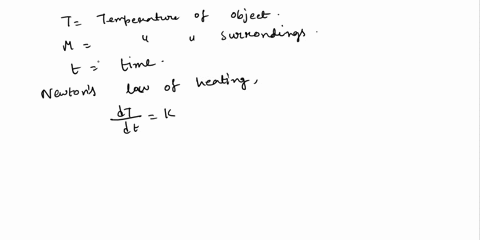 T = Temperature of object.
M = " " surrondings.
t = time.
Newton's law of heating,
dT/dt = K